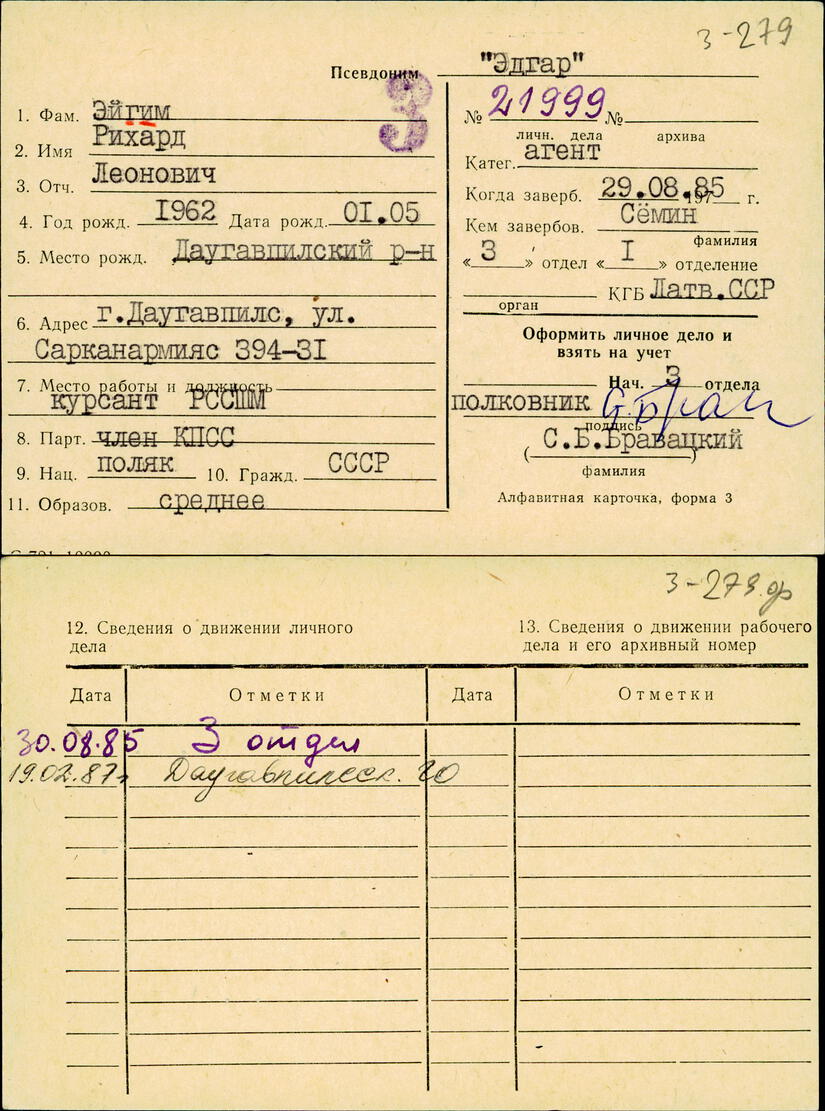 3-279
Псевдоним "Эдгар"
3
1. Фам. Эйгим
2. Имя Рихард
3. Отч. Леонович
4. Год рожд. 1962 Дата рожд. 01.05
5. Место рожд. Даугавпилский р-н
6. Адрес г.Даугавпилс, ул.
Сарканармияс 394-31
7. Место работы и должность
курсант РССШМ
8. Парт. член КПСС
9. Нац. поляк 10. Гражд. СССР
11. Образов. среднее
№ 21999 №
личн. дела архива
Катег. агент
Когда заверб. 29.08.85 197 г.
Кем завербов. Сёмин
фамилия
« 3 » отдел « I » отделение
КГБ Латв.ССР
орган
Оформить личное дело и
взять на учет
Нач. 3 отдела
полковник
подпись
( С.Б.Бравацкий )
фамилия
Алфавитная карточка, форма 3
3-279 
12. Сведения о движении личного
дела
13. Сведения о движении рабочего
дела и его архивный номер
Дата Отметки Дата Отметки
30.08.85 3 отдел
19.02.87г Даугавпилсск. ГО